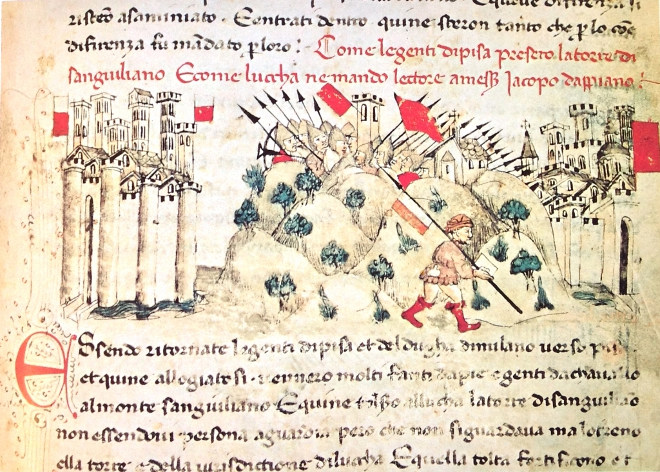 risteo asaminiato · Contrati dentro · quine steron tanto che p lo coe
difirenza fu mandato p loro :
Come le genti dipisa preseto la torre di
sanguiliano Ecome luccha ne mando lectore amess Jacopo dappiano :
Essendo ritornate le genti dipisa et del dugha dimilano verso
et quine allogiatosi · Et venero molti fanti dapie e genti dachavallo
al monte sanguiliano Equine allucha la torre disanguiliano
non essendovi persona aguardia pero che non siguardava
ella torre e della iurisdictione dilucca Equella tolta fortificono e t